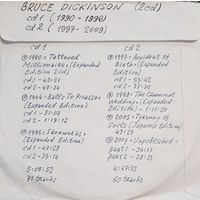 BRUCE DICKINSON (2cd)
cd 1 (1990 - 1996)
cd 2 (1997 - 2009)
cd 1
1990 = Tattooed
Millionaire (Expanded
Edition 2cd)
cd 1 - 53:31
cd 2 - 41:36
1994 = Balls To Picasso
(Expanded Edition)
cd 1 - 51:09
cd 2 - 1:19:12
1996 = Skunkworks
(Expanded Edition)
cd 1 - 47:28
cd 2 - 39:16
5:08:52
73 tracks
cd 2
1997 = Accident Of
Birth (Expanded
Edition)
cd 1 - 53:42
cd 2 - 53:30
1998 = The Chemical
Wedding (Expanded
Edition) - 1:11:13
2005 = Tyranny Of
Souls (Japanese Edition)
49:29
2009 = Unpolished
part 1 - 36:13
part 2 - 23:31
4:47:35
60 tracks